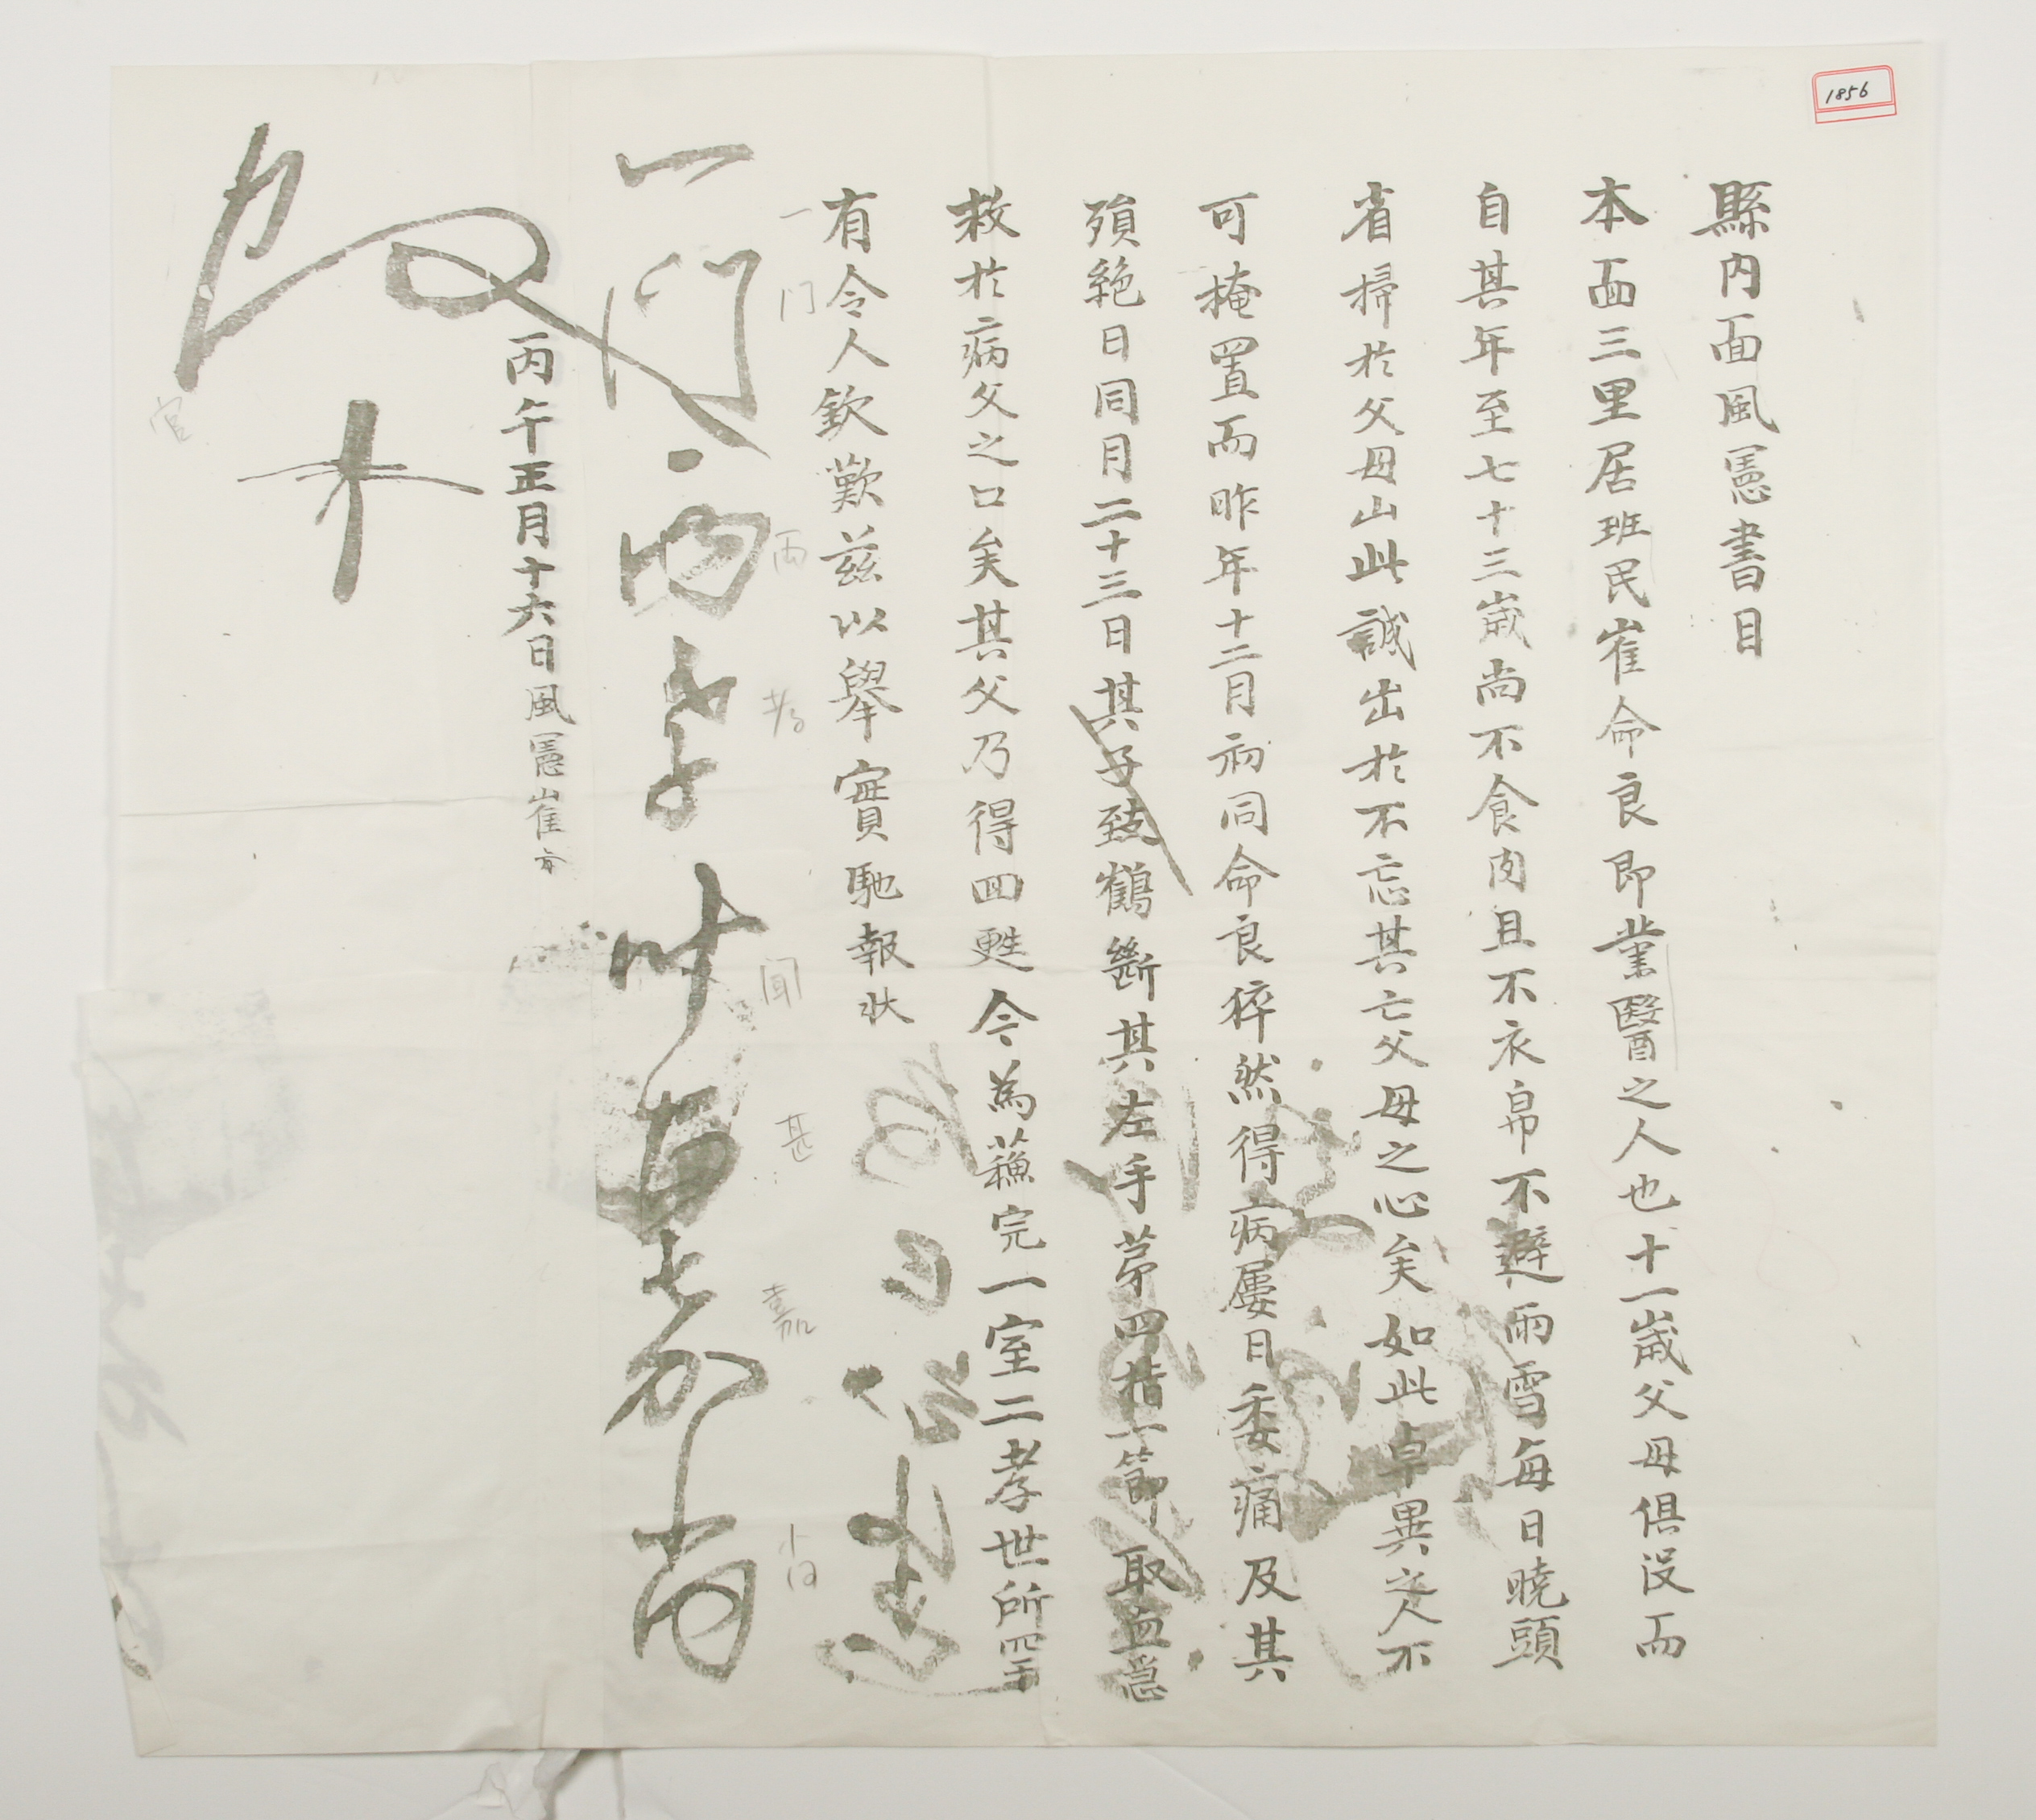 1856
縣内面風憲書目
本面三里居班民崔命良即業醫之人也十一歲父母俱沒而
自其年至七十三歲尚不食肉且不衣帛不避雨雪每日曉頭
省掃於父母山此誠出於不忘其亡父母之心矣如此卓異之人不
可掩置而昨年十二月初同命良猝然得病屢日委痛及其
殞絶日同月二十三日其子致鶴斷其左手第四指一節取血
救於病父之口矣其父乃得回甦今為蘓完一室二孝世所
有令人欽歎兹以舉實馳報狀
一門兩孝聞甚嘉尚
一門 兩 孝 聞 甚 嘉 尙
丙午正月十六日風憲崔
官